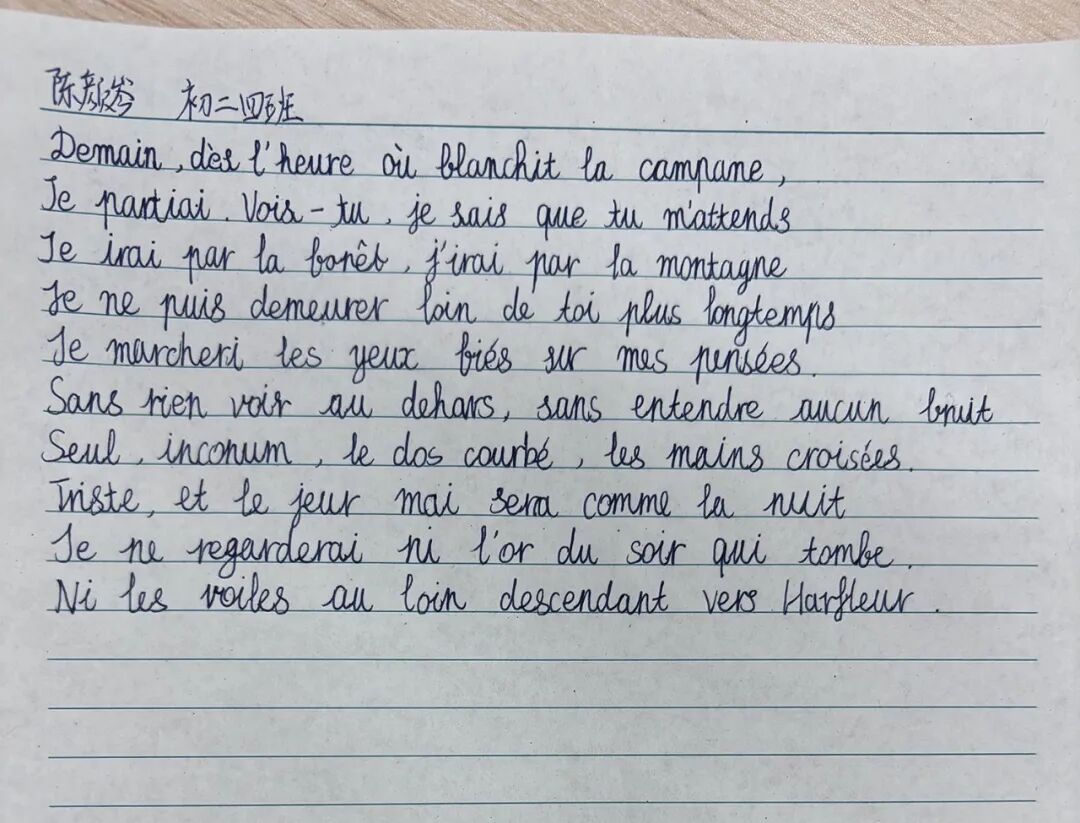 陈彦岑 初二四班
Demain, dès l'heure où blanchit la campane,
Je partiai. Vois-tu, je sais que tu m'attends
Je irai par la forêt, j'irai par la montagne
Je ne puis demeurer loin de toi plus longtemps
Je marcheri les yeux fiés sur mes pensées.
Sans rien voir au dehars, sans entendre aucun bruit
Seul, inconum, le dos courbé, les mains croisées.
Triste, et le jeur mai sera comme la nuit
Je ne regarderai ni l'or du soir qui tombe.
Ni les voiles au loin descendant vers Harfleur.